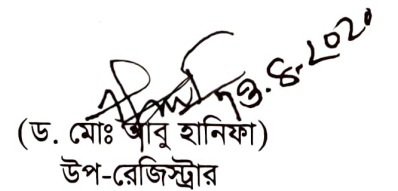 ১৩.৪.২০২০
(ড. মোঃ আবু হানিফা)
উপ-রেজিস্ট্রার